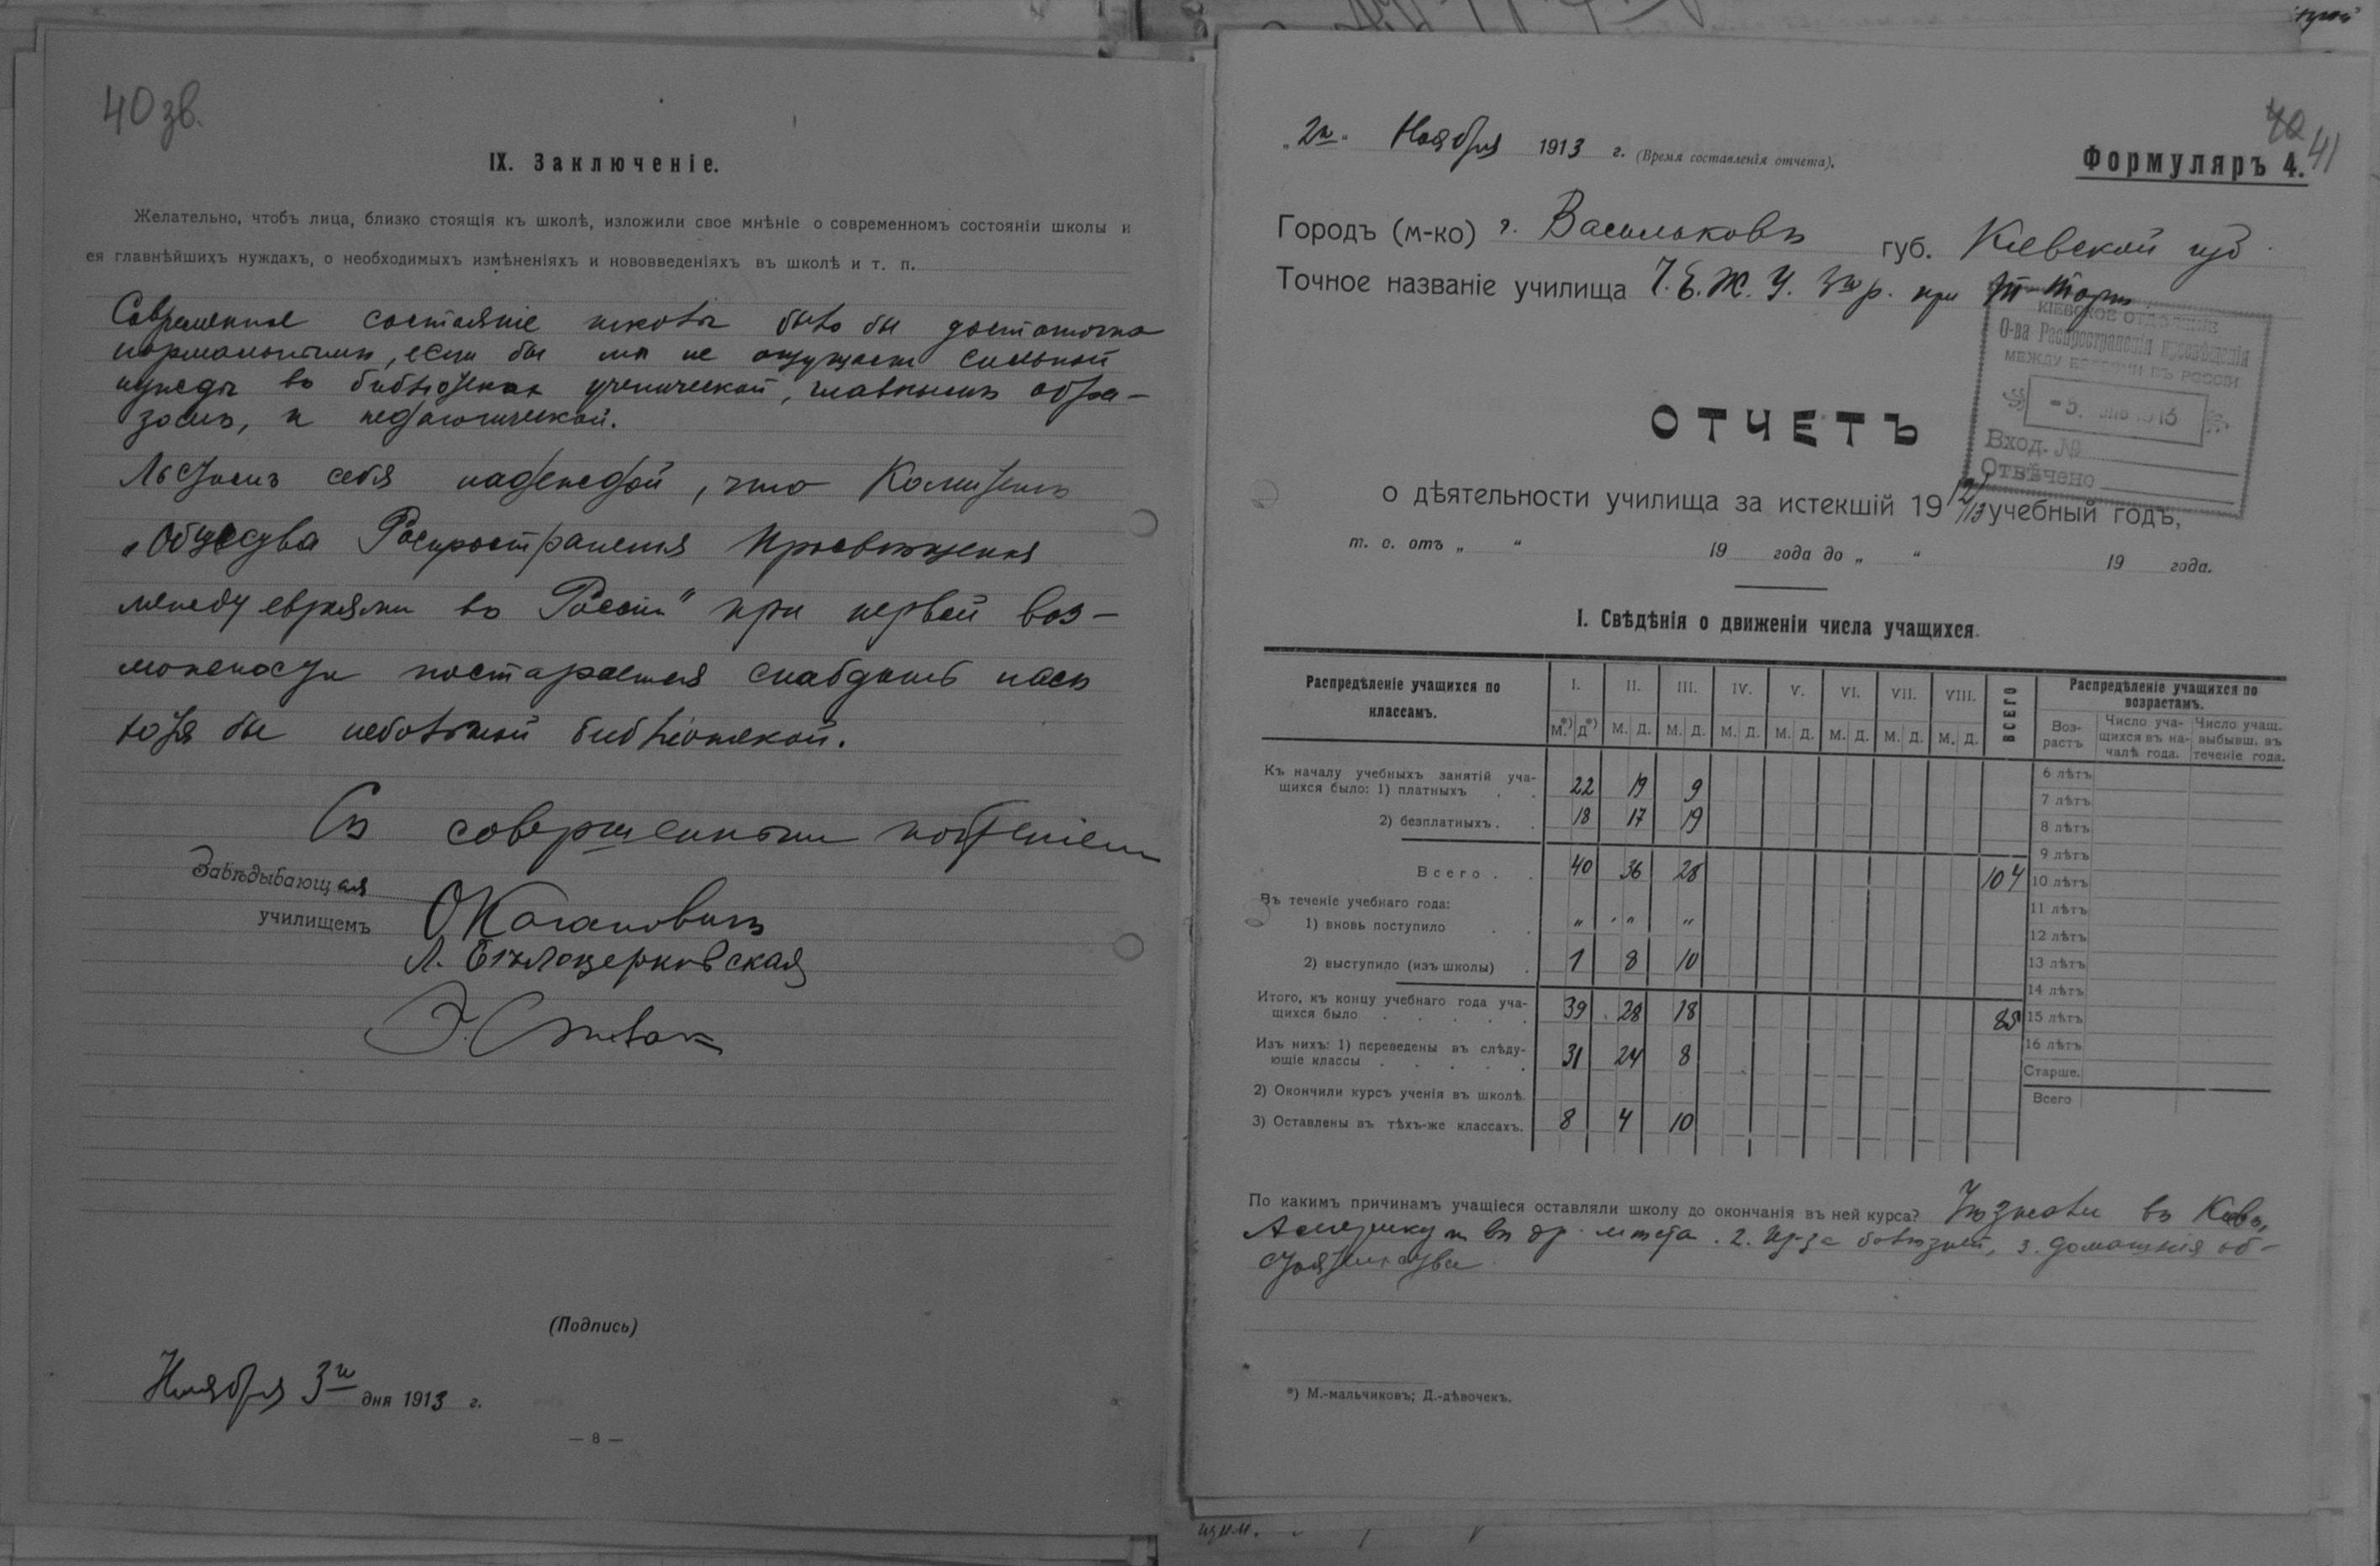 40 зв.
IX. Заключеніе.
Желательно, чтобъ лица, близко стоящія къ школѣ, изложили свое мнѣніе о современномъ состояніи школы и
ея главнѣйшихъ нуждахъ, о необходимыхъ измѣненіяхъ и нововведеніяхъ въ школѣ и т. п.
Современное состояніе школы было бы достаточно
нормальнымъ, если бы мы не ощущали сильной
нужды въ библіотекѣ ученической, главнымъ обра-
зомъ, и педагогической.
Льстимъ себя надеждой, что Комитетъ
„Общества Распространенія Просвѣщенія
между евреями въ Россіи" при первой воз-
можности постарается снабдить насъ
хотя бы небольшой библіотекой.
Съ совершеннымъ почтеніемъ
Завѣдывающая
училищемъ
О Кагановичъ
Л. Бѣлоцерковская
Э. Спивак
(Подпись)
Ноября 3го дня 1913 г.
— 8 —
40 41
„2го" Ноября 1913 г. (Время составленія отчета).
Формуляръ 4.
Городъ (м-ко) г. Васильковъ губ. Кіевской губ.
Точное названіе училища Ч. Е. Ж. У. 3го р. при
КІЕВСКОЕ ОТДѢЛЕНІЕ
О-ва Распространенія просвѣщенія
МЕЖДУ ЕВРЕЯМИ ВЪ РОССІИ
-5. 1913
Вход. №
Отвѣчено
ОТЧЕТЪ
о дѣятельности училища за истекшій 1912/13 учебный годъ,
т. е. отъ „ " 19 года до „ " 19 года.
I. Свѣдѣнія о движеніи числа учащихся.
Распредѣленіе учащихся по классамъ. I. II. III. IV. V. VI. VII. VIII. ВСЕГО Распредѣленіе учащихся по возрастамъ.
М.*) Д*) М. Д. М. Д. М. Д. М. Д. М. Д. М. Д. М. Д. Воз-растъ Число уча-щихся въ на-чалѣ года. Число учащ. выбывш. въ теченіе года.
Къ началу учебныхъ занятій уча-
щихся было: 1) платныхъ 22 19 9
2) безплатныхъ 18 17 19
Всего 40 36 28 104
Въ теченіе учебнаго года:
1) вновь поступило „ „ „
2) выступило (изъ школы) 1 8 10
Итого, къ концу учебнаго года уча-
щихся было 39 28 18 85
Изъ нихъ: 1) переведены въ слѣду-
ющіе классы 31 24 8
2) Окончили курсъ ученія въ школѣ.
3) Оставлены въ тѣхъ-же классахъ. 8 4 10
6 лѣтъ
7 лѣтъ
8 лѣтъ
9 лѣтъ
10 лѣтъ
11 лѣтъ
12 лѣтъ
13 лѣтъ
14 лѣтъ
15 лѣтъ
16 лѣтъ
Старше.
Всего
По какимъ причинамъ учащіеся оставляли школу до окончанія въ ней курса? въ Кіевъ,
Америку и въ др. мѣста. 2. Из-за болѣзней, 3. домашнія об-
стоятельства
*) М.-мальчиковъ; Д.-дѣвочекъ.